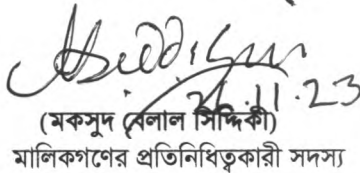 26.11.23
(মকসুদ বেলাল সিদ্দিকী)
মালিকগণের প্রতিনিধিত্বকারী সদস্য